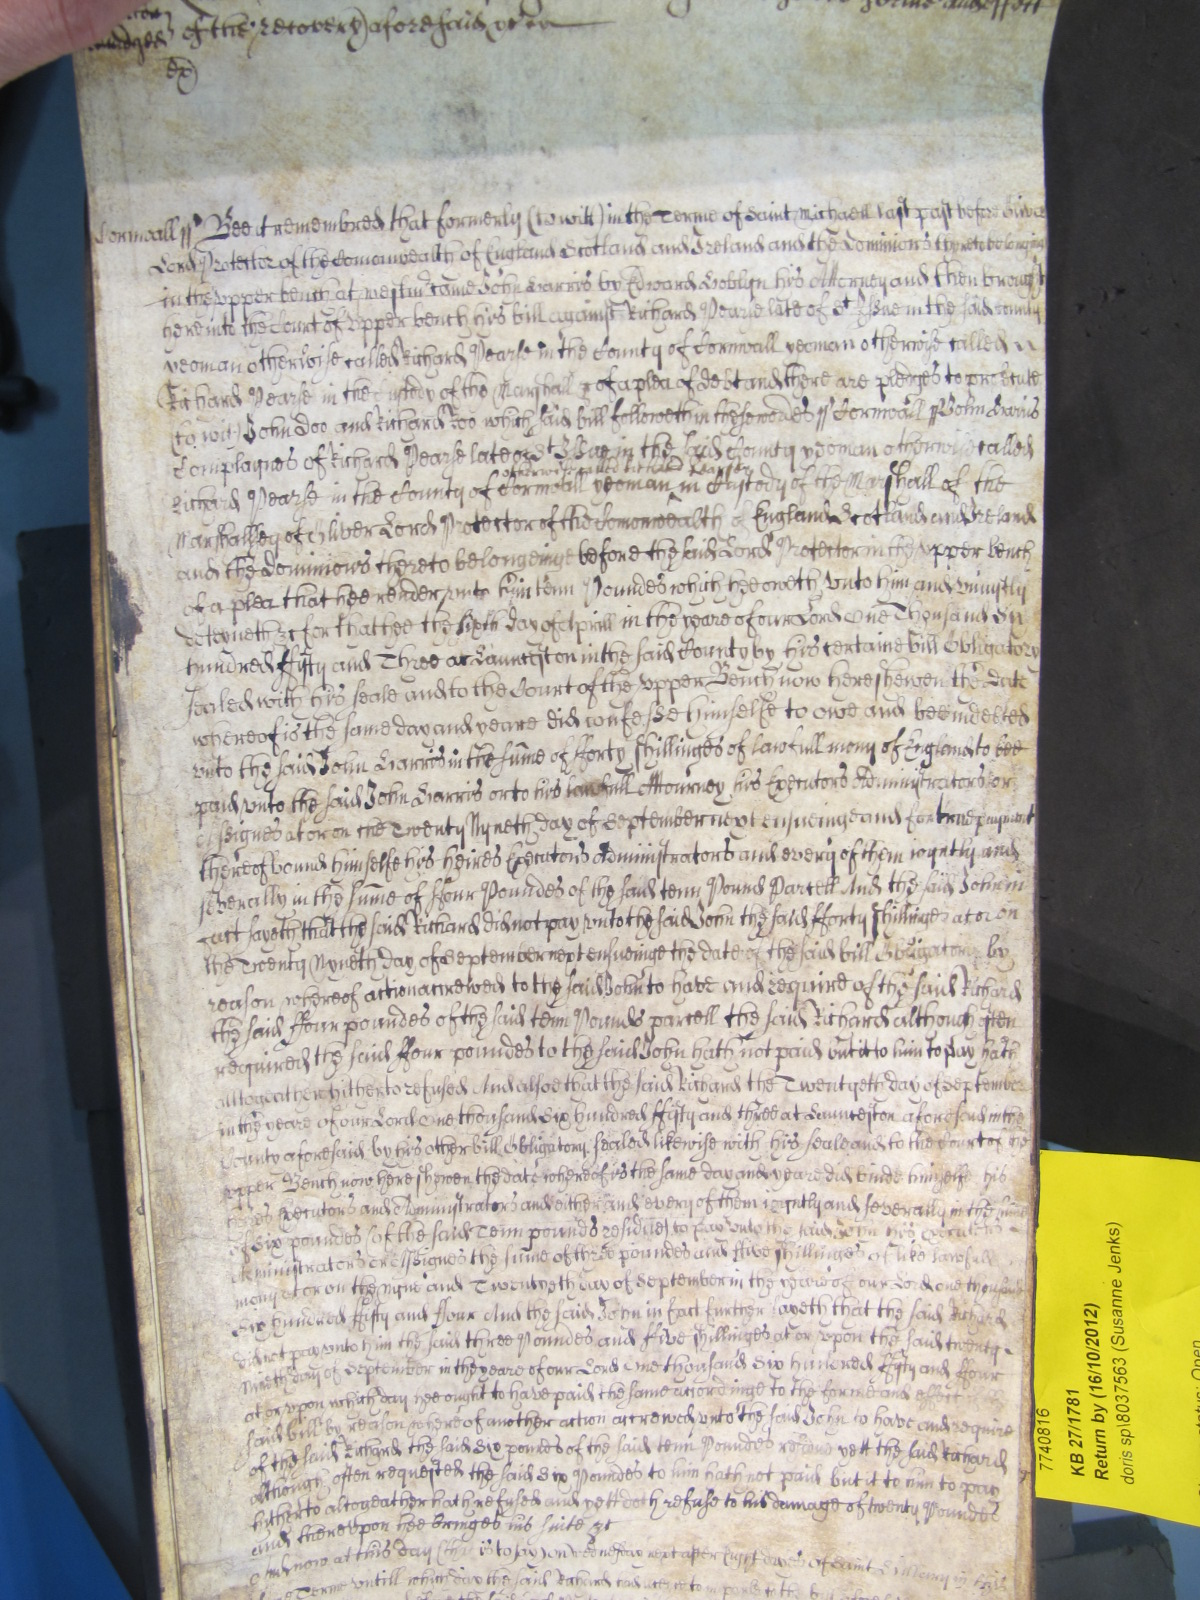 of the recovery aforesaid
Cornwall ss Bee it remembred that formerly (to witt) in the Terme of Saint Michaell last past before Oliver
Lord Protector of the Comonwealth of England Scotland and Ireland and the Dominions thereto belonging
in the upper bench at Westmr came John Harris by Edward Hoblyn his Attorney and then brought
here into the Court of upper bench his bill against Richard Pearse late of St in the said county
yeoman otherwise called Richard Pearse in the County of Cornwall yeoman otherwise called
Richard Pearse in the Custody of the Marshall &c of a plea of debt and there are pledges to prosecute
(to wit) John Doo and Richard Roo which said bill followeth in these wordes ss Cornwall ss John Harris
Complaynes of Richard Pearse late of St in the said County yeoman otherwise called
otherwise called Richard Pearse
Richard Pearse in the County of Cornwall yeoman in Custody of the Marshall of the
Marshallsey of Oliver Lord Protector of the Comonwealth of England Scotland and Ireland
and the Dominions thereto belongeinge before the said Lord Protector in the upper bench
of a plea that hee render unto him tenn Poundes which hee oweth unto him and uniustly
deteyneth &c for that hee the sixth day of Aprill in the yeare of our Lord One Thousand Six
hundred ffifty and Three at Launceston in the said County by his certaine bill Obligatory
sealed with his seale and to the Court of the upper Bench now here shewen the date
whereof is the same day and yeare did confesse himselfe to owe and bee indebted
unto the said John Harris in the sume of fforty shillinges of lawfull mony of England to bee
paid unto the said John Harris or to his lawfull Attourney his Executors Administrators or
Assignes at or on the Twenty Nyneth day of September next ensueinge and for true payment
thereof bound himselfe his heires Executors Administrators and every of them ioyntly and
severally in the sume of ffour Poundes of the said tenn Pound Parcell And the said John in
fact sayeth that the said Richard did not pay unto the said John the said fforty shillinges at or on
the Twenty Nyneth day of September next ensueinge the date of the said bill Obligatory by
reason whereof action accrewed to the said John to have and require of the said Richard
the said ffour poundes of the said tenn Pounds parcell the said Richard although often
required the said ffour poundes to the said John hath not paid but it to him to pay hath
altogeather hitherto refused And alsoe that the said Richard the Twentyeth day of September
in the yeare of our Lord One thousand Six hundred ffifty and three at Launceston aforesaid in the
County aforesaid by his other bill Obligatory sealed likewise with his seale and to the Court of the
upper Bench now here shewen the date whereof is the same day and yeare did binde himselfe his
heires Executors and Administrators and either and every of them ioyntly and severally in the sume
of Six poundes (of the said Tenn poundes residue) to pay unto the said John his executors
Administrators or Assignes the sume of three poundes and ffive shillinges of like lawfull
mony at or on the nyne and Twentyeth day of September in the yeare of our Lord one thousand
Six hundred ffifty and ffour And the said John in fact further sayeth that the said Richard
did not pay unto him the said three Poundes and ffive shillinges at or upon the said twenty
Nineth day of September in the yeare of our Lord One thousand Six hundred ffifty and ffour
at or upon which day hee ought to have paid the same accordinge to the forme and effect
said bill by reason whereof another action accrewed unto the said John to have and require
of the said Richard the said Six poundes of the said tenn Poundes residue yett the said Richard
although often requested the said Six Poundes to him hath not paid but it to him to pay
hitherto altogeather hath refused and yett doth refuse to his damage of twenty Poundes
and thereupon hee bringes his suite &c
And now at this day (that is to say) on Wednesday next after
Terme untill which day the said Richard
7740816
KB 27/1781
Return by (16/10/2012)
doris sp\8037563 (Susanne Jenks)
status: Open